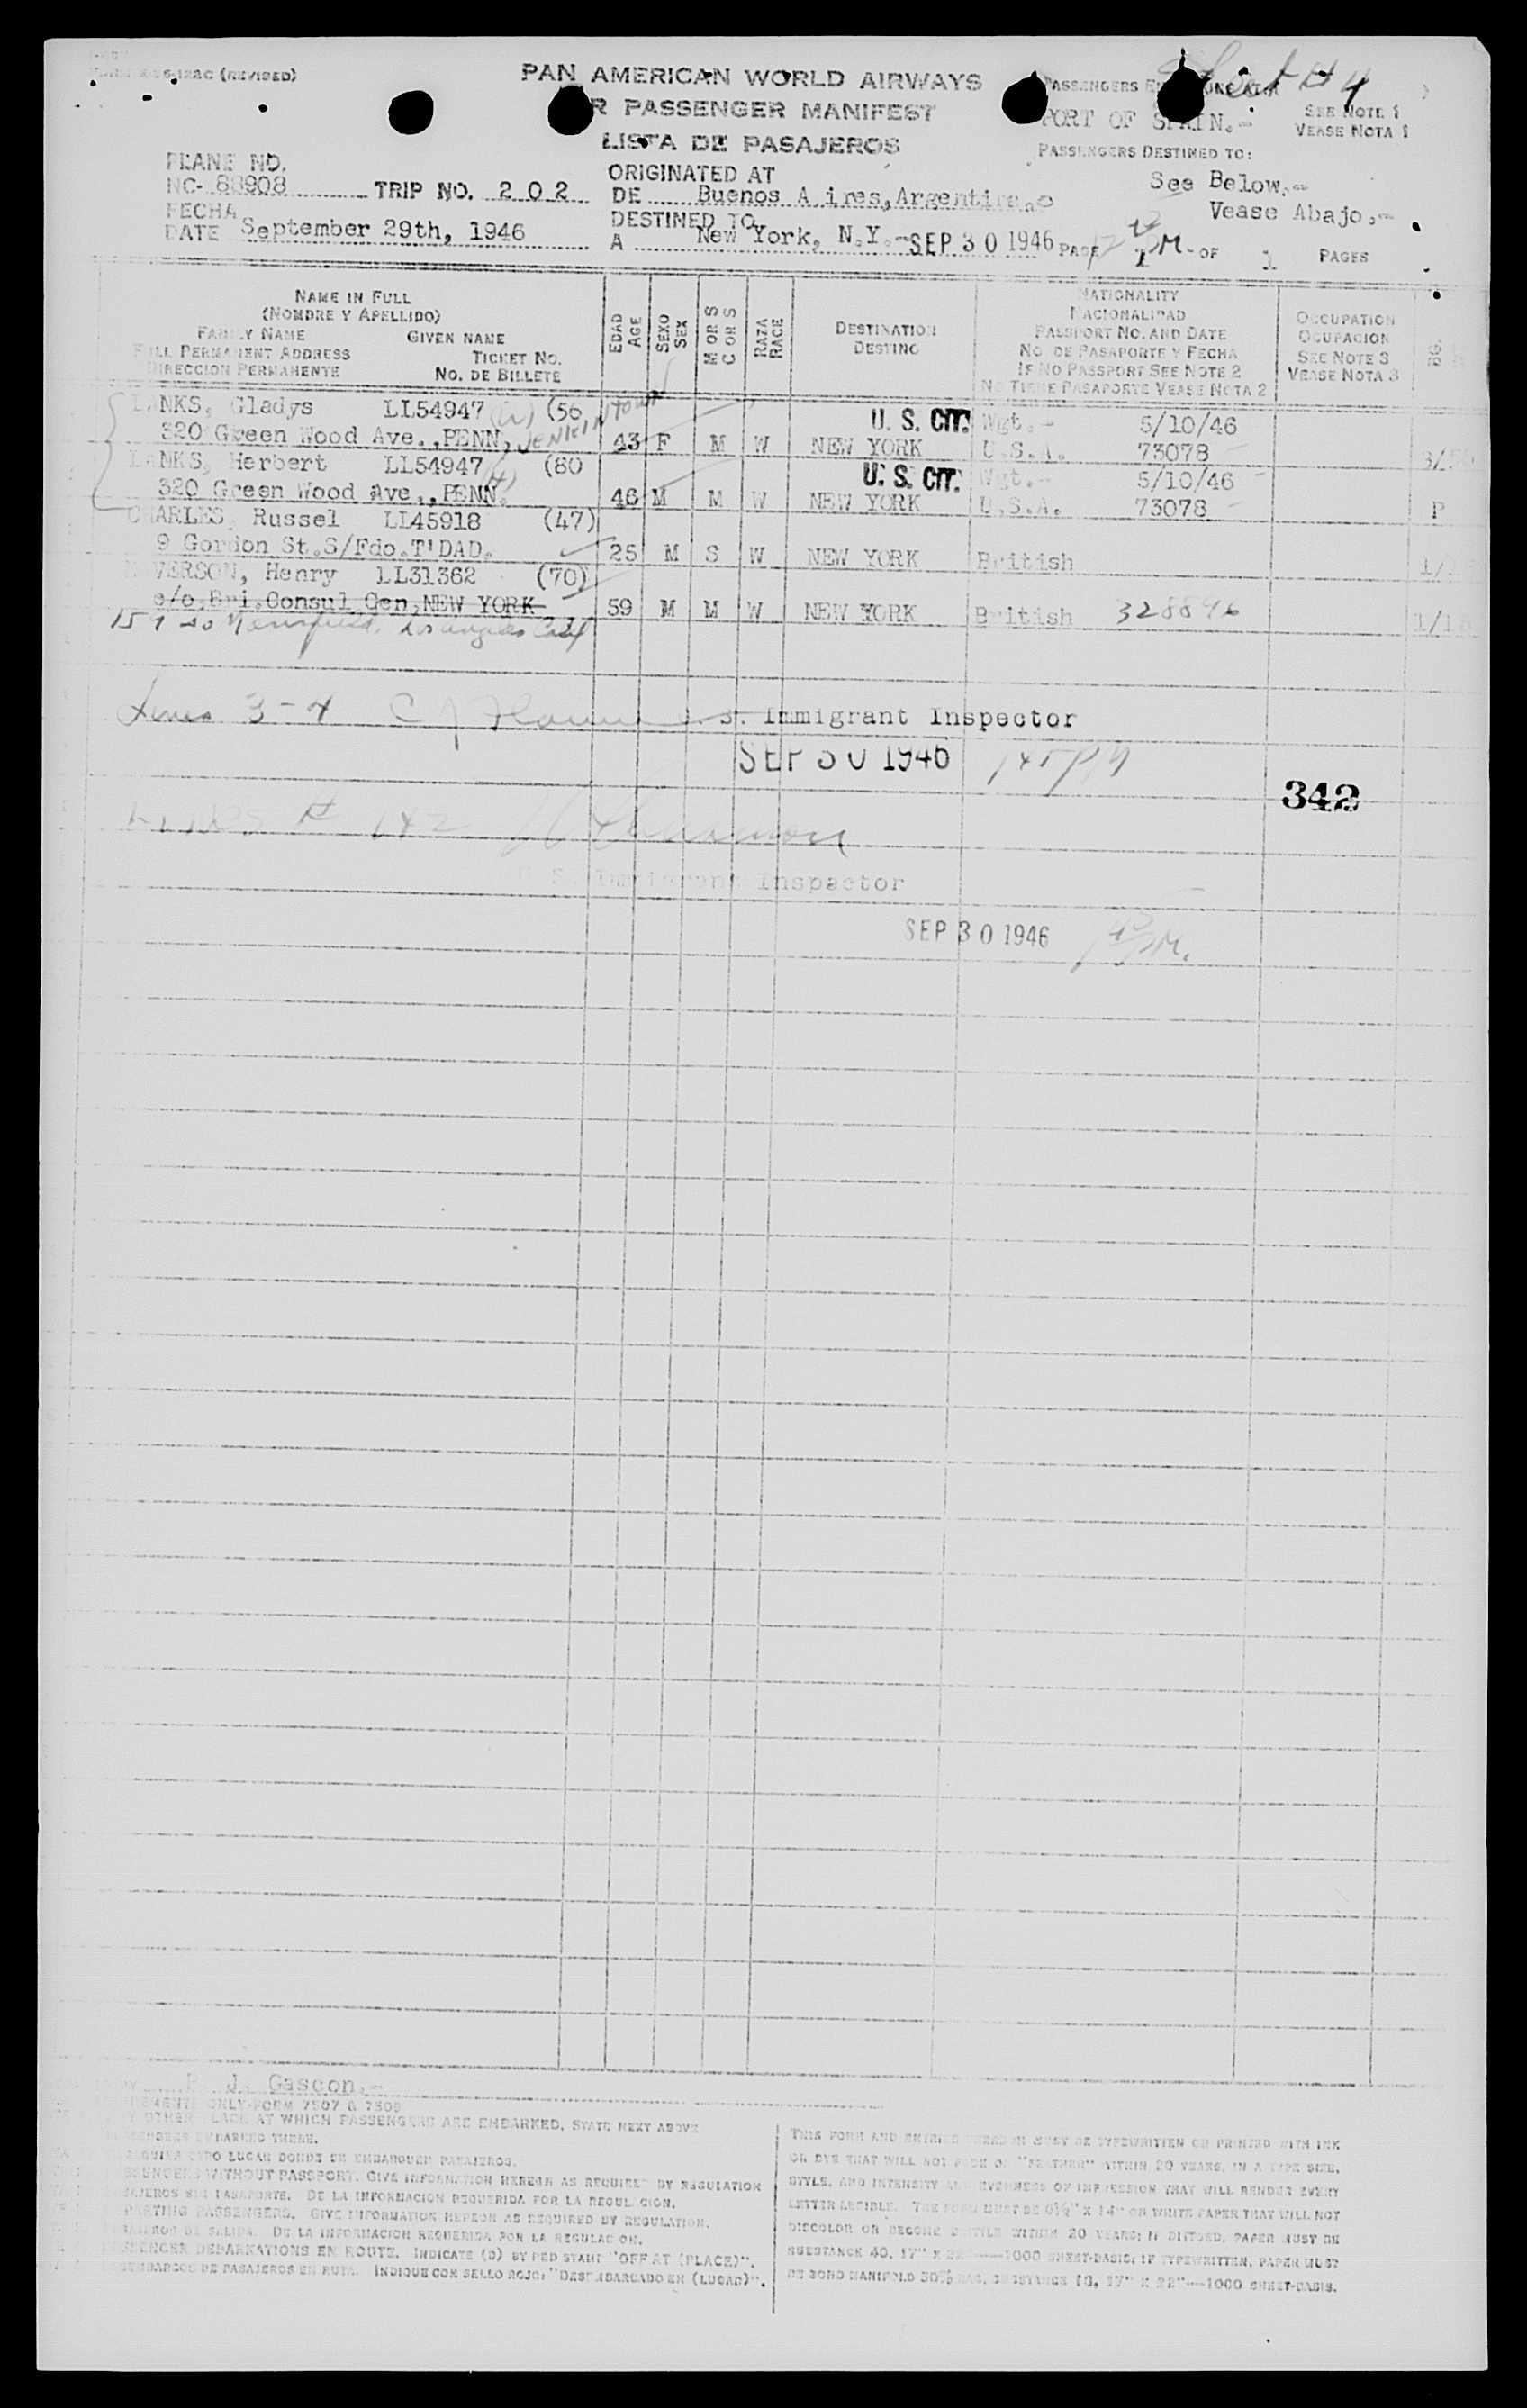 (REVISED)
Sheet #4
PAN AMERICAN WORLD AIRWAYS
R PASSENGER MANIFEST
LISTA DE PASAJEROS
PASSENGERS
PORT OF SPAIN.-
SEE NOTE 1
VEASE NOTA 1
PASSENGERS DESTINED TO:
See Below.-
Vease Abajo.-
PLANE NO.
NC- 88908 TRIP NO. 202
ORIGINATED AT
DE Buenos Aires, Argentina.
FECHA
DATE September 29th, 1946
DESTINED TO
A New York, N.Y.- SEP 30 1946 PAGE 1 OF 1 PAGES
NAME IN FULL
(NOMBRE Y APELLIDO)
FAMILY NAME GIVEN NAME
FULL PERMANENT ADDRESS TICKET NO.
DIRECCION PERMANENTE NO. DE BILLETE
EDAD AGE
SEXO SEX
M OR S
C OR S
RAZA RACE
DESTINATION
DESTINO
NATIONALITY
NACIONALIDAD
PASSPORT NO. AND DATE
NO. DE PASAPORTE Y FECHA
IF NO PASSPORT SEE NOTE 2
NO TIENE PASAPORTE VEASE NOTA 2
OCCUPATION
OCUPACION
SEE NOTE 3
VEASE NOTA 3
LANKS, Gladys LL54947 (56 U. S. CIT. Wgt.- 5/10/46
320 Green Wood Ave., PENN, JENKINTOWN 43 F M W NEW YORK U.S.A. 73078
LANKS, Herbert LL54947 (80 U. S. CIT. Wgt.- 5/10/46
320 Green Wood Ave., PENN. 46 M M W NEW YORK U.S.A. 73078 P
CHARLES, Russel LL45918 (47)
9 Gordon St. S/Fdo. T'DAD. 25 M S W NEW YORK British
VERSON, Henry LL31362 (70)
c/o Bri. Consul Gen, NEW YORK 59 M M W NEW YORK British 328896
Los Angeles Calif
Lines 3-4 S. Immigrant Inspector
SEP 30 1946
342
Immigrant Inspector
SEP 30 1946
J. Gascon.-
ONLY-FORM 7507 & 7509
OTHER PLACE AT WHICH PASSENGERS ARE EMBARKED, STATE NEXT ABOVE
EMBARKED THERE.
OTRO LUGAR DONDE SE EMBARQUEN PASAJEROS.
PASSENGERS WITHOUT PASSPORT. GIVE INFORMATION HEREON AS REQUIRED BY REGULATION
PASAJEROS SIN PASAPORTE. DE LA INFORMACION REQUERIDA POR LA REGULACION.
DEPARTING PASSENGERS. GIVE INFORMATION HEREON AS REQUIRED BY REGULATION.
PASAJEROS DE SALIDA. DE LA INFORMACION REQUERIDA POR LA REGULACION.
PASSENGER DEBARKATIONS EN ROUTE. INDICATE (D) BY RED STAMP "OFF AT (PLACE)".
DESEMBARCOS DE PASAJEROS EN RUTA. INDIQUE CON SELLO ROJO: "DESEMBARCADO EN (LUGAR)".
THIS FORM AND ENTRIES THEREON MUST BE TYPEWRITTEN OR PRINTED WITH INK
OR DYE THAT WILL NOT FADE OR "FEATHER" WITHIN 20 YEARS, IN A TYPE SIZE,
STYLE, AND INTENSITY AND EVENNESS OF IMPRESSION THAT WILL RENDER EVERY
LETTER LEGIBLE. THE FORM MUST BE 8½" X 14" ON WHITE PAPER THAT WILL NOT
DISCOLOR OR BECOME BRITTLE WITHIN 20 YEARS; IF DITTOED, PAPER MUST BE
SUBSTANCE 40, 17" X 22"—1000 SHEET-BASIS; IF TYPEWRITTEN, PAPER MUST
BE BOND MANIFOLD 50% RAG, SUBSTANCE 18, 17" X 22"—1000 SHEET-BASIS.